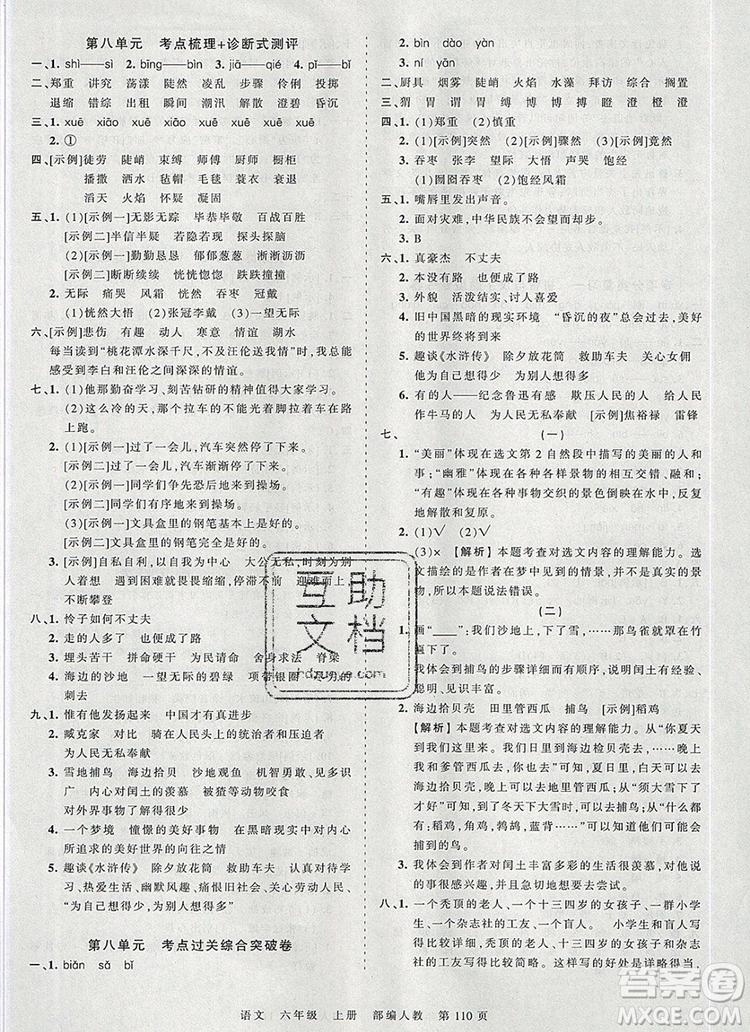 第八单元 考点梳理+诊断式测评
一、1. shì——sì 2. bīng——bīn 3. jiā——qié 4. pī——bǐ
二、郑重 讲究 荡漾 陡然 凌乱 步骤 伶俐 投掷
退缩 错综 出租 瞬间 潮汛 解散 澄碧 昏沉
三、1. xuē xiāo xuē xuē xuē
2. ①
四、[示例]徒劳 陡峭 束缚 师傅 厨师 橱柜
播撒 洒水 毡帽 毛毯 蓑衣 衰退
滔天 火焰 怀疑 凝固
五、1. (1)[示例一]无影无踪 毕恭毕敬 百战百胜
[示例二]半信半疑 若隐若现 探头探脑
(2)[示例一]勤勤恳恳 郁郁葱葱 淅淅沥沥
[示例二]断断续续 恍恍惚惚 跌跌撞撞
2. 无际 痛哭 风霜 恍然 吞枣 冠戴
(1)恍然大悟 (2)张冠李戴 (3)一望无际
六、[示例]悲伤 有趣 动人 寒意 情谊 湖水
每当读到“桃花潭水深千尺，不及汪伦送我情”时，都能
感受到李白和汪伦之间深深的情谊。
七、1. (1)他那勤奋学习、刻苦钻研的精神值得大家学习。
(2)这么冷的天，那个拉车的不能光着脚拉着车在路
上跑。
2. (1)[示例一]过了一会儿，汽车突然停了下来。
[示例二]过了一会儿，汽车渐渐停了下来。
(2)[示例一]同学们争先恐后地来到操场。
[示例二]同学们有序地来到操场。
(3)[示例一]文具盒里的钢笔大部分是好的。
[示例二]文具盒里的钢笔完全是好的。
3. [示例]自私自利，以自我为中心 大公无私，时刻为别
人着想 遇到困难就畏缩缩，停滞不前 迎难而上，
不断攀登
八、1. 怜子如何不丈夫
2. 走的人多了，也便成了路
3. 埋头苦干 拼命硬干 为民请命 舍身求法 脊梁
4. 海边的沙地 一望无际的碧绿 项带银圈 尽力的
刺去
九、1. 惟有英雄驱虎豹 中国才有真进步
2. 臧克家 对比 与人民为敌的统治者和压迫者
为人民无私奉献
3. 雪地捕鸟 海边拾贝 沙地观鱼 机智勇敢 见多识
广 内心对闰土的羡慕 猹猹等被动物咬食
对外界事物了解很少
4. 一个梦境 憧憬的美好事物 在黑暗现实中对内心
所追求的美好世界的向往之情
5. 趣谈《水浒传》 除夕放花筒 救助车夫 认真对待学
习、热爱生活、幽默风趣、痛恨旧社会、关爱别人胜过
关心自己
第八单元 考点过关综合突破卷
一、1. biǎn sǎ bǐ
2. bìn dào yàn
3. hú yī
二、厨具 烟雾 陡峭 火焰 水藻 拜访 综合 搁置
三、猬 胃 谓 搏 缚 博 膊 瞪 橙 澄 澄
四、1. (1)郑重 (2)慎重
2. (1)[示例]突然 (2)[示例]骤然 (3)[示例]竟然
3. 吞枣 张李 望际 大悟 声哭 饱经
(1)囫囵吞枣 (2)饱经风霜
五、1. 嘴唇里发出声音。
2. 面对灾难，中华民族不会而却步。
3. B
六、1. 真豪杰 不丈夫
2. 本没有路 也便成了路
3. 外貌 活泼可爱、讨人喜爱
4. 旧中国黑暗的现实环境 “昏沉的夜”总要过去，美好
的世界终将到来
5. 趣谈《水浒传》 除夕放花筒 救助车夫 关心女佣
为自己想得少，为别人想得多
6. 有的人——纪念鲁迅有感 欺压人民的人 给人民
作牛马的人 为人民无私奉献 [示例]焦裕禄 雷锋
七、 (一)
1. “美丽”体现在选文第2自然段中描写的美的人和
事；“幽雅”体现在各种各样景物的相互交错、融和；
“有趣”体现在各种事物交织的景色但无限变化，永
远的解散与复原。
2. (1)√ (2)√
(3)× 【解析】本题考查对选文内容的理解能力。选
文描绘的是作者在梦中所见到的情景，并不是现实的
情景，所以本题说法错误。
(二)
1. 画“____”：我们沙地上，下了雪，……那鸟雀就罩在
竹匾下了。
我体会到捕鸟的步骤详细而有顺序，感受到闰土捕鸟
经验的丰富。
2. 海边拾贝壳 田里管西瓜 捕鸟 [示例]稻鸡
【解析】本题考查对选文内容的理解能力。从“你夏天
到我们这里来。我们日里到海边捡贝壳去，……晚上
我和爹管西瓜去，你也去”可概括出，闰土向“我”讲了
海边拾贝壳、田里管西瓜等事情。从“须大雪下了才
好。我们沙地上，下了雪，……”可概括出，闰土向“我”
讲了雪地捕鸟的事情。从“……晚上我和爹……什么
都有：稻鸡，角鸡，鹁鸪，蓝背……”可知，闰土捕到过稻
鸡、角鸡等。
3. 我体会到作者对闰土丰富多彩的生活很羡慕，对他的
经历很感兴趣，并且很愿意去尝试。
八、1. 一个秃顶的老头子 一个满头红头发的女孩子 一
个小学生 一个杂志社的工友 小学生写得比较详细，
老头子、十三四岁的女孩子、杂志社的工友写得比较简略。
语文 六年级 上册 部编人教 第110页
互助文档
hdzuoye.com